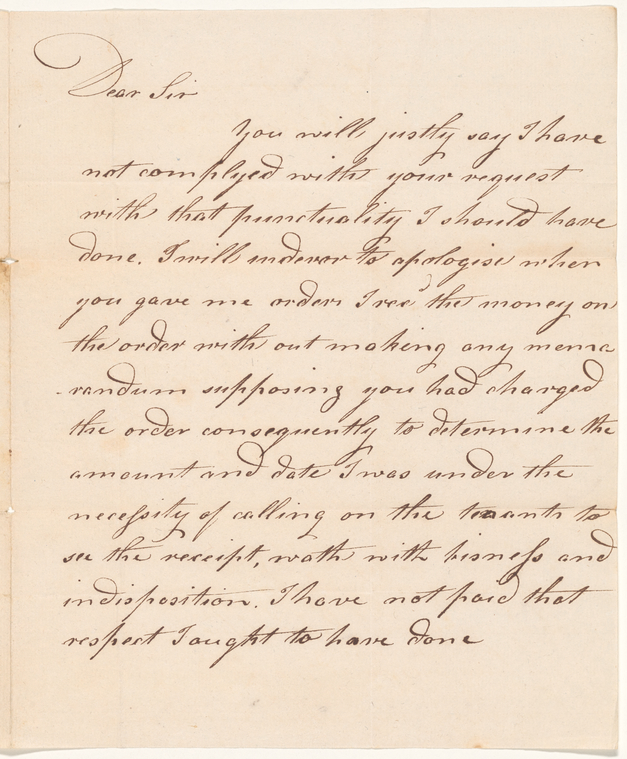 Dear Sir
You will justly say I have
not complyed with your request
with that punctuality I should have
done. I will indevor to apologise when
you gave me orders I recd the money on
the order with out making any memo
randum supposing you had charged
the order consequently to determine the
amount and date I was under the
necessity of calling on the tenants to
see the receipt, wath with bisness and
indisposition. I have not paid that
respect I aught to have done